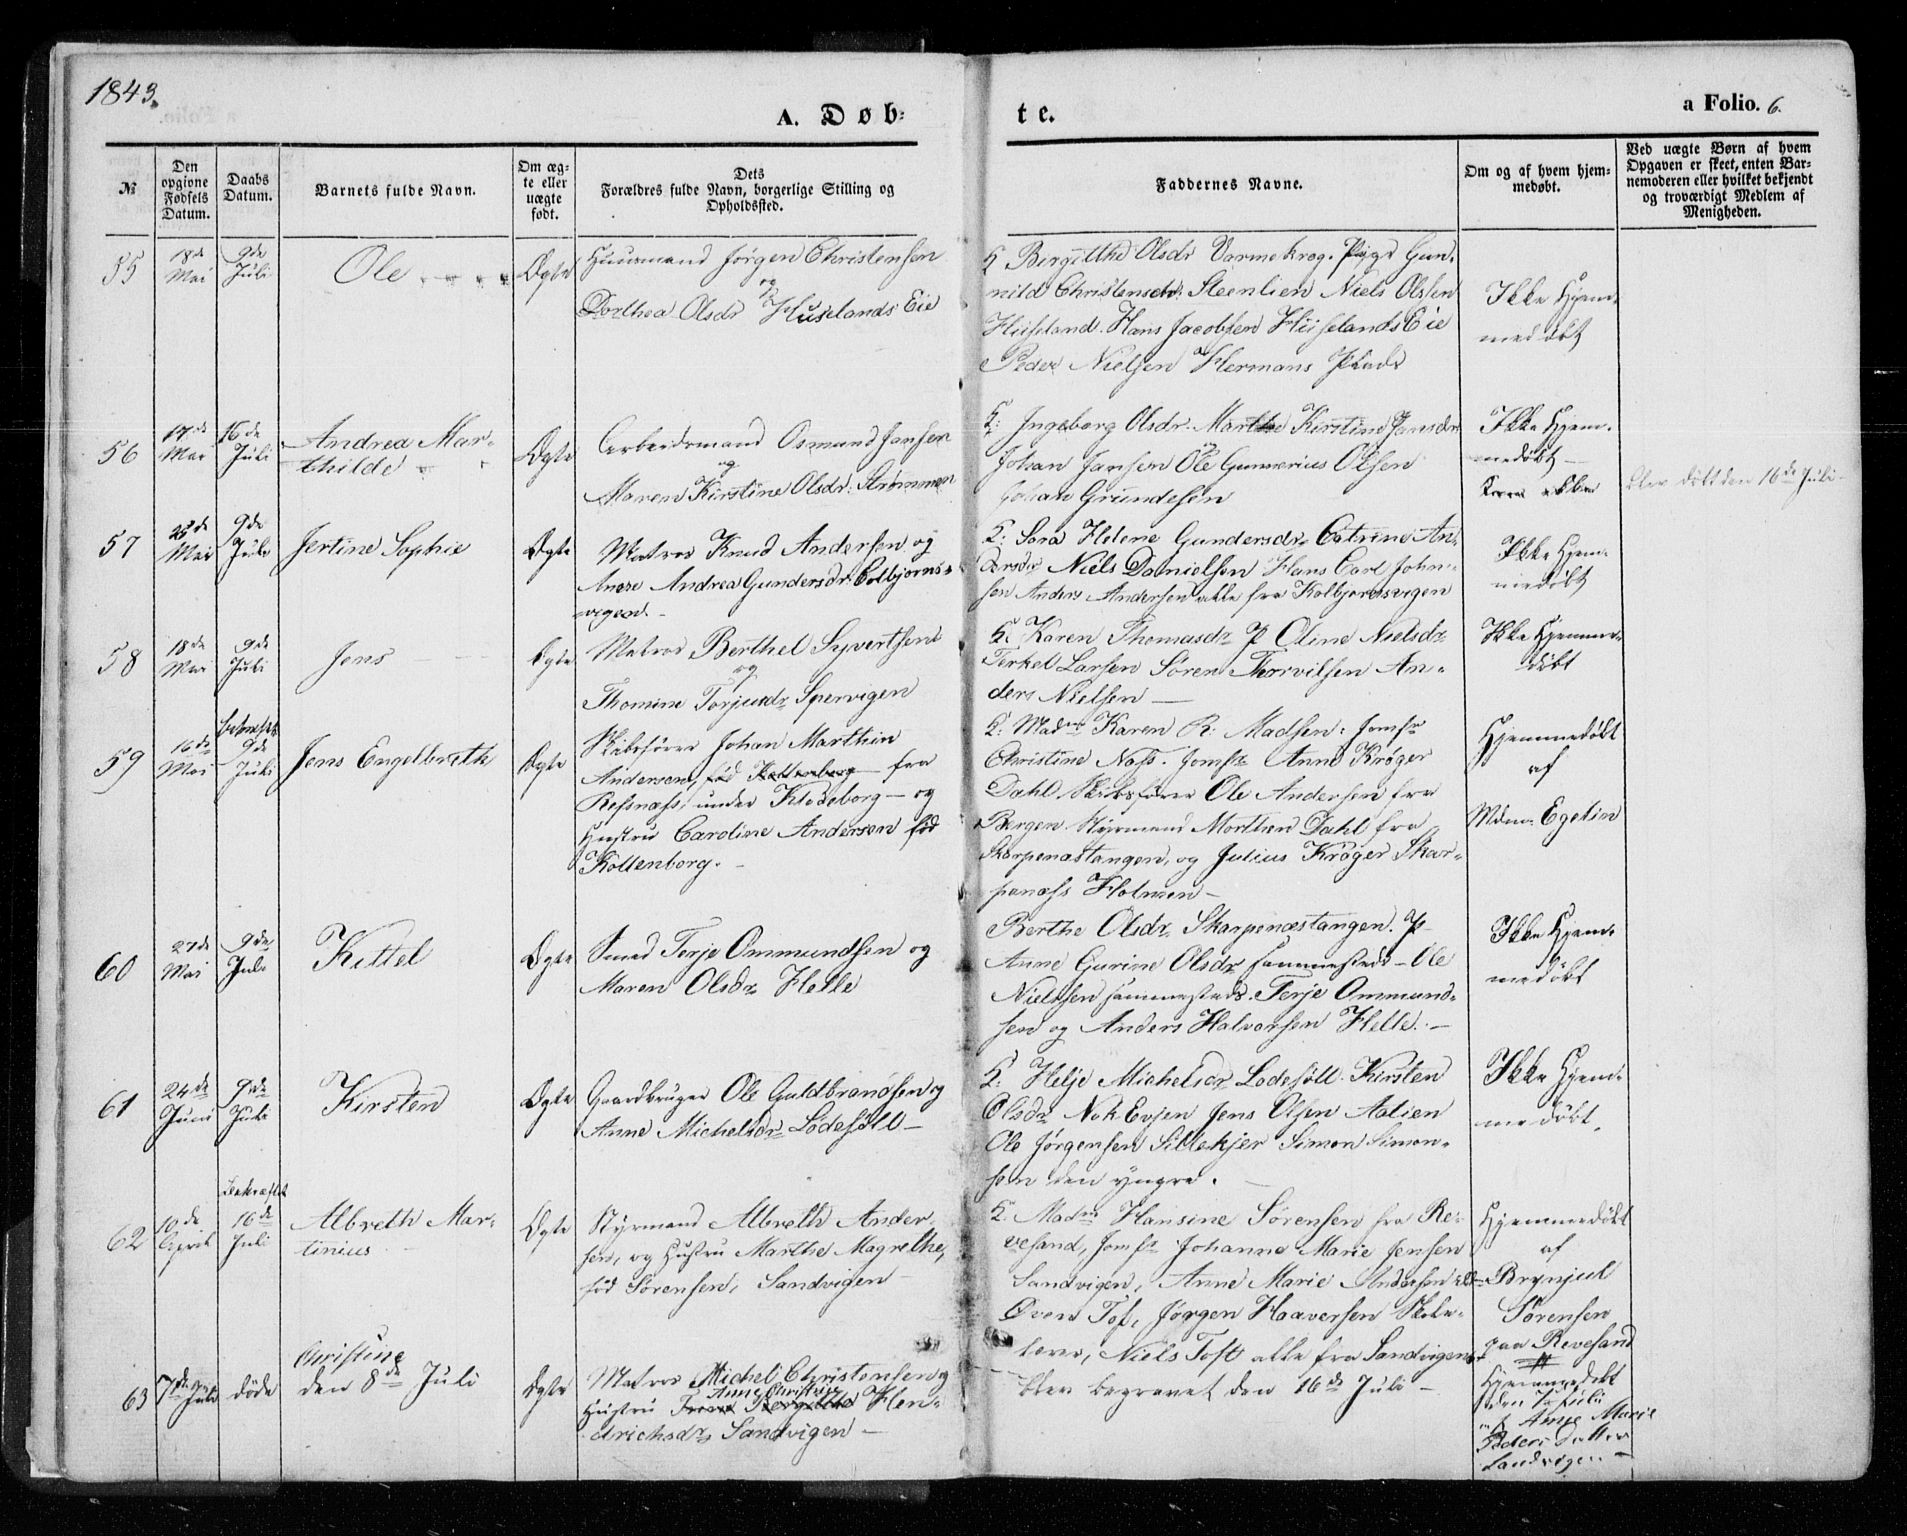 1843.
A. Døb-
te.
a Folio. 6.
№
Den opgivne Fødsels Datum.
Daabs Datum.
Barnets fulde Navn.
Om ægte eller uægte født.
Dets Forældres fulde Navn, borgerlige Stilling og Opholdssted.
Faddernes Navne.
Om og af hvem hjemmedøbt.
Ved uægte Børn af hvem Opgaven er skeet, enten Barnemoderen eller hvilket bekjendt og troværdigt Medlem af Menigheden.
55
18de Mai
9de Juli
Ole
Ægte
Huusmand Jørgen Christensen
og
Dorthea Olsdr Huselands Eie
Birgitthe Olsdr Varmekrog. Pige Gun-
nild Christensdr: Steenlien Niels Olsen
Huseland. Hans Jacobsen Huselands Eie
Peder Nielsen Hermans
Ikke Hjem-
medøbt
56
17de Mai
16de Juli
Andrea Mar-
thilde
Ægte
Arbeidsmand Osmund Jansen
og
Maren Kirstine Olsdr: Strømmen
Ingeborg Olsdr. Marthe Kirstine Jansdr
Johan Jansen Ole Gunnerius Olsen
Johan Grundesen
Ikke Hjem-
medøbt
blev døbt den 16de Juli
57
25de Mai
9de Juli
Jertine Sophie
Ægte
Matros Knud Andersen og
Andrea Gundersdr: Colbjorns-
vigen.
Sara Helene Gundersdr. Catrine An-
dersdr Niels Danielsen Hans Carl John-
sen Anders Andersen alle fra Kolbjørnsvigen
Ikke Hjem-
medøbt
58
18de Mai
9de Juli
Jens
Ægte
Matros Berthel Syvertsen
og
Thomine Torjusdr Spervigen
Karen Thomasdr P Oline Nielsdr
Terkel Larsen Søren Terrvilsen An-
ders Nielsen
Ikke Hjemme-
døbt
59
16de Mai
9de Juli
Jens Engelbreth
Ægte
Skibsfører Johan Marthin
Andersen, fød Kollenborg fra
Resnæss, under Klodeborg - og
Hustru Caroline Andersen fød
Kollenborg.
Madm Karen R. Madsen: Jomfr
Christine Næss. Jomfr Anne Krøger
Dahl Skibsfører Ole Andersen fra
Bergen Styrmand Morthen Dahl fra
Skarpenæstangen, og Julius Krøger Skar-
penæss Holmen
Hjemmedøbt
af
Mdm. Egelin
60
27de Mai
9de Juli
Kittel
Ægte
Smed Terje Ommundsen og
Maren Olsdr Helle
Berthe Olsdr Skarpenæstangen. P
Anne Gurine Olsdr sammesteds - Ole
Nielsen sammesteds. Terje Ommund-
sen og Anders Halvorsen Helle.
Ikke Hjem-
medøbt
61
24de Juni
9de Juli
Kirsten
Ægte
Gaardbruger Ole Guldbrandsen og
Anne Michelsdr Lødesøll
Helje Michelsdr Lødesøll. Kirsten
Olsdr Nok Evjen Jens Olsen Aalien
Ole Jørgensen Sillekjer Simon Simon-
sen den yngre.
Ikke Hjem-
medøbt.
62
10de April
Bekræftet
16de Juli
Albreth Mar-
tinius
Ægte
Styrmand Albreth Ander-
sen, og Hustru Marthe Magrethe,
fød Sørensen, Sandvigen
Madm Hansine Sørensen fra Re-
vesand, Jomfr Johanne Marie Jensen
Sandvigen, Anne Marie Andersen
Øven Tof, Jørgen Haaversen Skole-
lærer, Niels Toft alle fra Sandvigen
Hjemmedøbt
af
Brynjul
Sørensen
paa Revesand
63
7de Juli
døde
Christine
den 8de Juli
Ægte
Matros Michel Christensen og
Anne Christine
Hustru Hen-
drichsdr Sandvigen
blev begravet den 16de Juli
Hjemmedøbt
den 7 Juli
af Anne Marie
Peders datter
Sandvigen